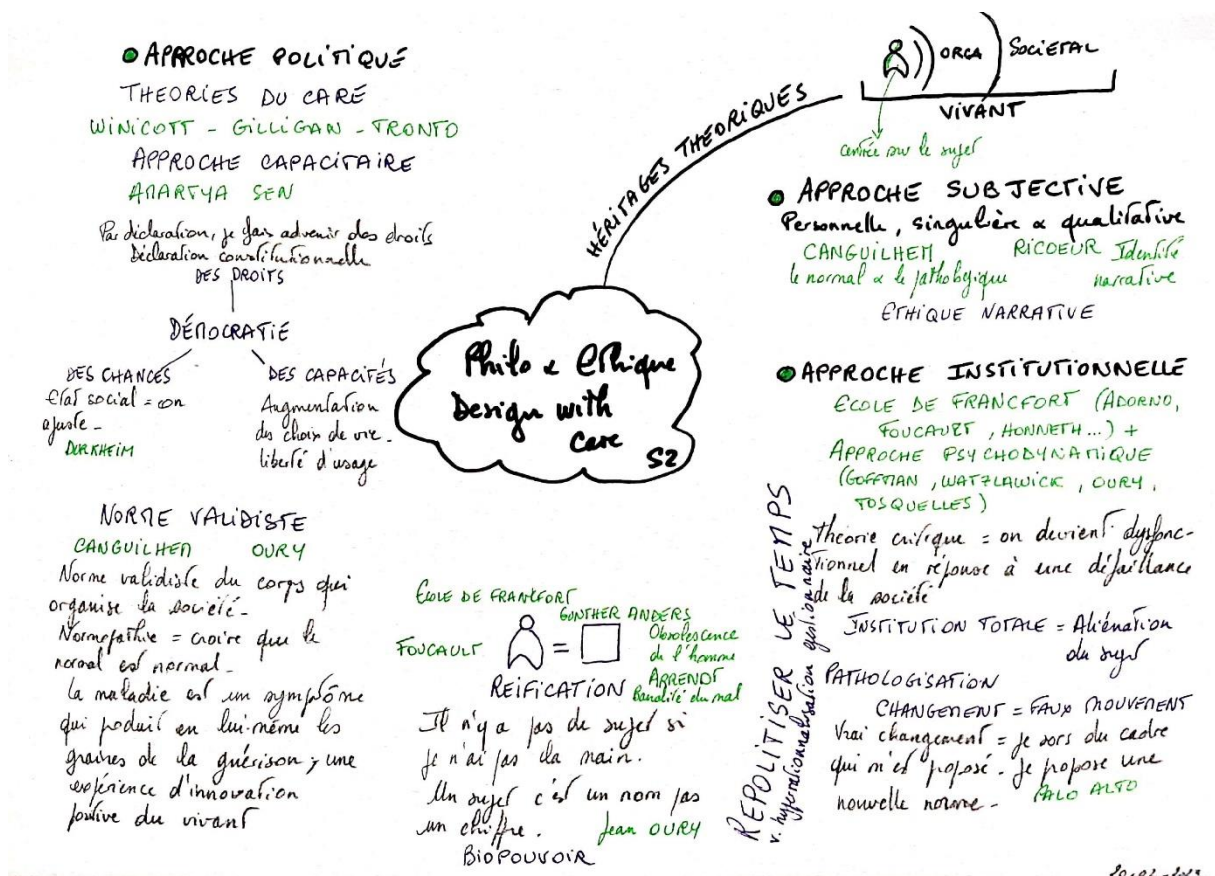 APPROCHE POLITIQUE
THEORIES DU CARE
WINICOTT - GILLIGAN - TRONTO
APPROCHE CAPACITAIRE
AMARTYA SEN
Par déclaration, je fais advenir des droits
Déclaration constitutionnelle
DES DROITS
DÉMOCRATIE
DES CHANCES
État social = on
ajuste -
DURKHEIM
DES CAPACITÉS
Augmentation
des choix de vie -
liberté d'usage
NORME VALIDISTE
CANGUILHEM OURY
Norme validiste du corps qui
organise la société -
Normopathie = croire que le
normal est normal -
La maladie est un symptôme
qui produit en lui-même les
graines de la guérison ; une
expérience d'innovation
positive du vivant
HÉRITAGES THEORIQUES
Philo & Ethique
Design with
Care
S2
ECOLE DE FRANCFORT
FOUCAULT
=
GÜNTHER ANDERS
Obsolescence
de l'homme
ARRENDT
Banalité du mal
REIFICATION
Il n'y a pas de sujet si
je n'ai pas la main.
Un sujet c'est un nom pas
un chiffre. Jean OURY
BIOPOUVOIR
ORGA SOCIETAL
VIVANT
centrée sur le sujet
APPROCHE SUBJECTIVE
Personnelle, singulière & qualitative
CANGUILHEM
le normal & le pathologique
RICOEUR Identité
narrative
ETHIQUE NARRATIVE
APPROCHE INSTITUTIONNELLE
ECOLE DE FRANCFORT (ADORNO,
FOUCAULT, HONNETH...) +
APPROCHE PSYCHODYNAMIQUE
(GOFFMAN, WATZLAWICK, OURY,
TOSQUELLES)
REPOLITISER LE TEMPS
v. hyperrationnalisation gestionnaire
Théorie critique = on devient dysfonc-
tionnel en réponse à une défaillance
de la société
INSTITUTION TOTALE = Aliénation
du sujet
PATHOLOGISATION
CHANGEMENT = FAUX MOUVEMENT
Vrai changement = je sors du cadre
qui m'est proposé. Je propose une
nouvelle norme - PALO ALTO